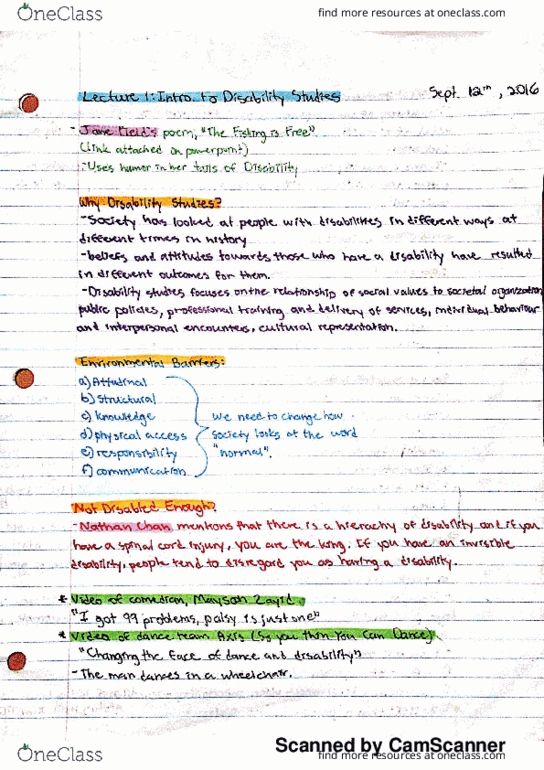 OneClass
find more resources at oneclass.com
Lecture 1: Intro. to Disability Studies
Sept. 12th, 2016
- Jane Field's poem, "The Fishing is Free"
(Link attached on powerpoint)
- Uses humor in her talks of Disability
Why Disability Studies?
- Society has looked at people with disabilities in different ways at
different times in history
- beliefs and attitudes towards those who have a disability have resulted
in different outcomes for them.
- Disability studies focuses on the relationship of social values to societal organization,
public policies, professional training and delivery of services, individual behaviour
and interpersonal encounters, cultural representation.
Environmental Barriers:
a) Attudinal
b) Structural
c) knowledge
d) physical access
e) responsibility
f) communication
we need to change how
society looks at the word
"normal".
Not Disabled Enough?
- Nathan Chan mentions that there is a hierachy of disability and if you
have a spinal cord injury, you are the king. If you have an invisible
disability, people tend to disregard you as having a disability.
* Video of comedian, Maysoon Zayid.
"I got 99 problems, palsy is just one"
* Video of dance team Axis (So you think You Can Dance)
"Changing the face of dance and disability"
- The man dances in a wheelchair.
Scanned by CamScanner
OneClass
find more resources at oneclass.com